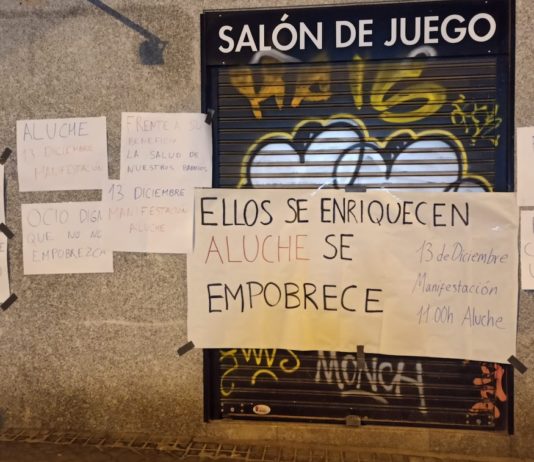 SALÓN DE JUEGO
ALUCHE
13 DICIEMBRE
MANIFESTACIÓN
FRENTE A SU
BENEFICIO
LA SALUD DE
NUESTROS BARRIOS
13 DICIEMBRE
MANIFESTACIÓN
ALUCHE
OCIO DIGN
QUE NO NO
EMPOBREZCA
ELLOS SE ENRIQUECEN
ALUCHE SE
EMPOBRECE
13 de Diciembre
Manifestación
11 00h Aluche
MONCH